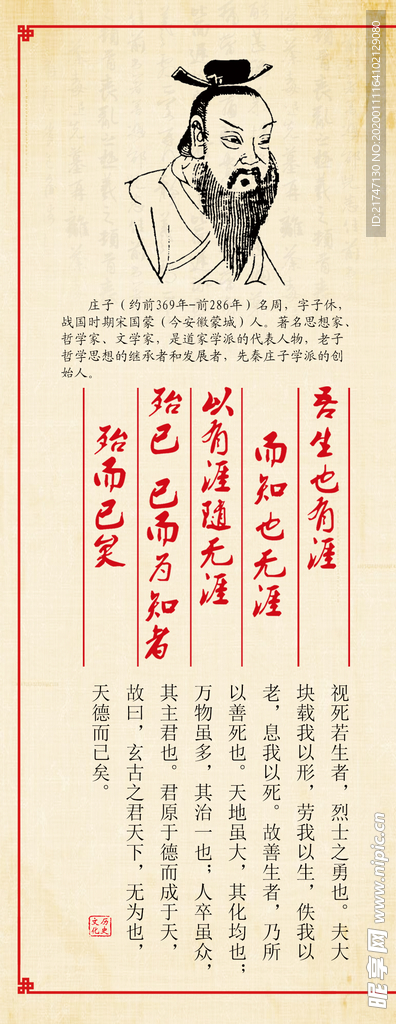 庄子（约前369年-前286年）名周，字子休，
战国时期宋国蒙（今安徽蒙城）人。著名思想家、
哲学家、文学家，是道家学派的代表人物，老子
哲学思想的继承者和发展者，先秦庄子学派的创
始人。
吾生也有涯
而知也无涯
以有涯随无涯
殆已 已而为知者
殆而已矣
视死若生者，烈士之勇也。夫大
块载我以形，劳我以生，佚我以
老，息我以死。故善生者，乃所
以善死也。天地虽大，其化均也；
万物虽多，其治一也；人卒虽众，
其主君也。君原于德而成于天，
故曰，玄古之君天下，无为也，
天德而已矣。
历史
文化
昵享网 www.nipic.cn
ID:21747130 NO:20200111164102129080